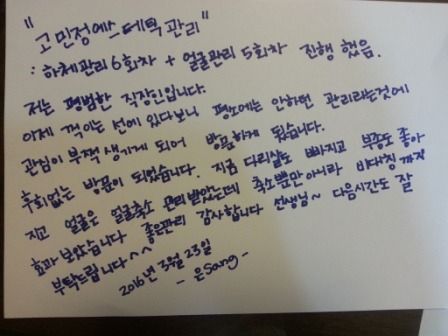 "고민정에스테틱관리"
: 하체관리 6회차 + 얼굴관리 5회차 진행 했음.
저는 평범한 직장인입니다.
이제 꺽이는 선에 있다보니 평소에는 안하면 관리라는것에
관심이 부쩍 생기게 되어 방문하게 됬습니다.
후회없는 방문이 되었습니다. 지금 다리살도 빠지고 부종도 좋아
지고 얼굴은 얼굴축소 관리받았는데 축소뿐만아니라 비대칭까지
효과 보았습니다 좋은관리 감사합니다 선생님~ 다음시간도 잘
부탁드립니다^^
2016년 3월 23일
- 은sang -